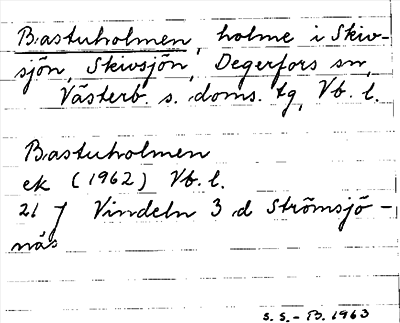 Bastuholmen, holme i Skiv-
sjön, Skivsjön, Degerfors sn,
Västerb. s. doms. tg, Vb. l.
Bastuholmen
ek (1962) Vb. l.
21 J Vindeln 3 d Strömsjö-
näs
S.S.-B. 1963